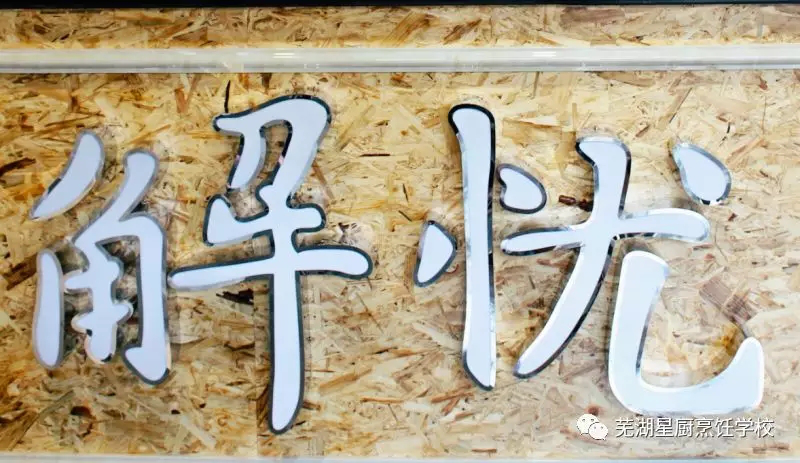 解忧
芜湖星厨烹饪学校